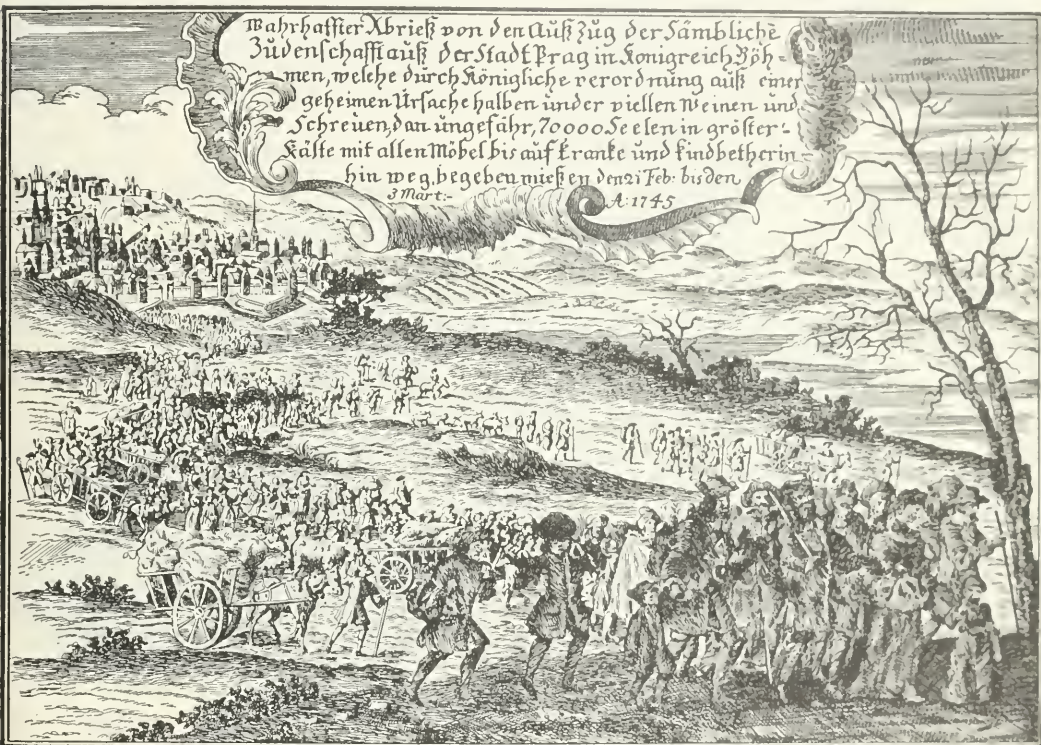 Wahrhaffter Abrieß von den Außzug der Sämbliche̅
Judenschafft auß der Stadt Prag in Konigreich Böh=
men, welche dürch Königliche verordnung auß einer
geheimen Ürsache halben under viellen Weinen und
Schreüen, dan ungefähr, 70000 Seelen in gröster=
Kälte mit allen Möbel bis auf kranke und kindbetherin=
hin weg, begeben mießen den 21 Feb: bis den
3 Mart:- A: 1745